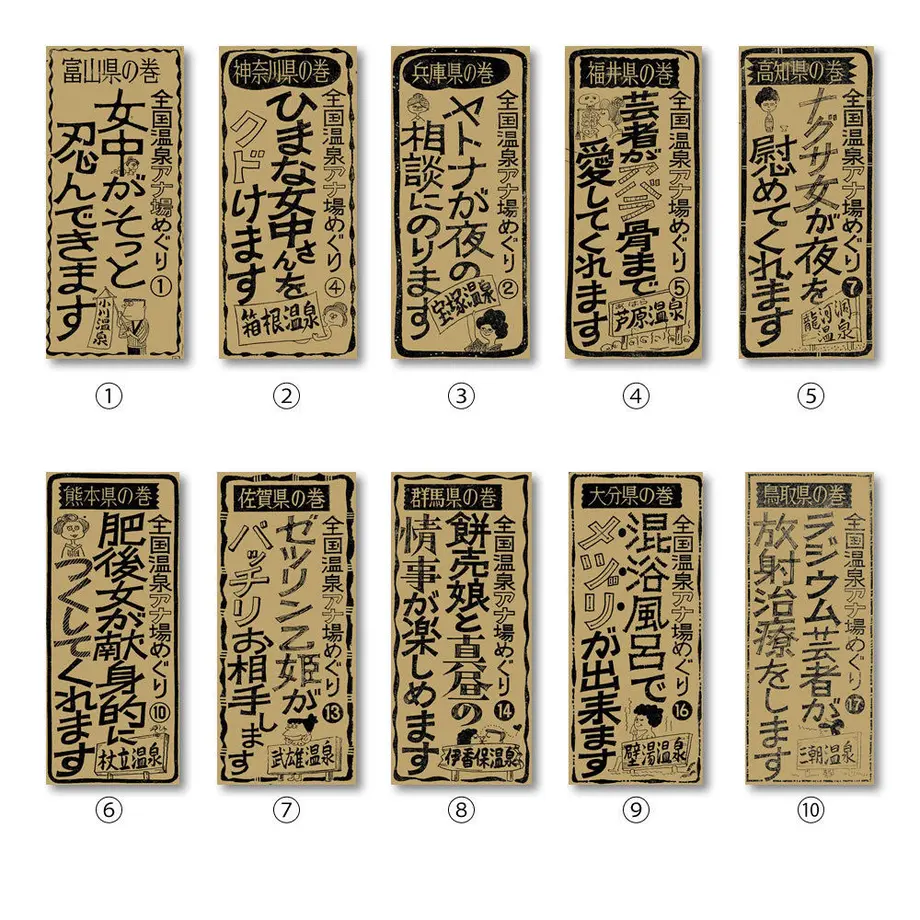 富山県の巻
全国温泉アナ場めぐり①
女中がそっと
忍んできます
小川温泉
①
神奈川県の巻
全国温泉アナ場めぐり④
ひまな女中さんを
クドけます
箱根温泉
②
兵庫県の巻
全国温泉アナ場めぐり②
ヤトナが夜の
相談にのります
宝塚温泉
③
福井県の巻
全国温泉アナ場めぐり⑤
芸者がアバラ骨まで
愛してくれます
あはら
芦原温泉
④
高知県の巻
全国温泉アナ場めぐり❼
ナグサ女が夜を
慰めてくれます
龍河洞温泉
⑤
熊本県の巻
全国温泉アナ場めぐり⑩
肥後女が献身的に
つくしてくれます
杖立温泉
⑥
佐賀県の巻
全国温泉アナ場めぐり⓭
ゼツリン乙姫が
バッチリお相手します
武雄温泉
⑦
群馬県の巻
全国温泉アナ場めぐり⓮
餅売娘と真昼の
情事が楽しめます
伊香保温泉
⑧
大分県の巻
全国温泉アナ場めぐり⓰
混浴風呂で
メヅリが出来ます
壁湯温泉
⑨
鳥取県の巻
全国温泉アナ場めぐり⓱
ラジウム芸者が
放射治療をします
三朝温泉
⑩